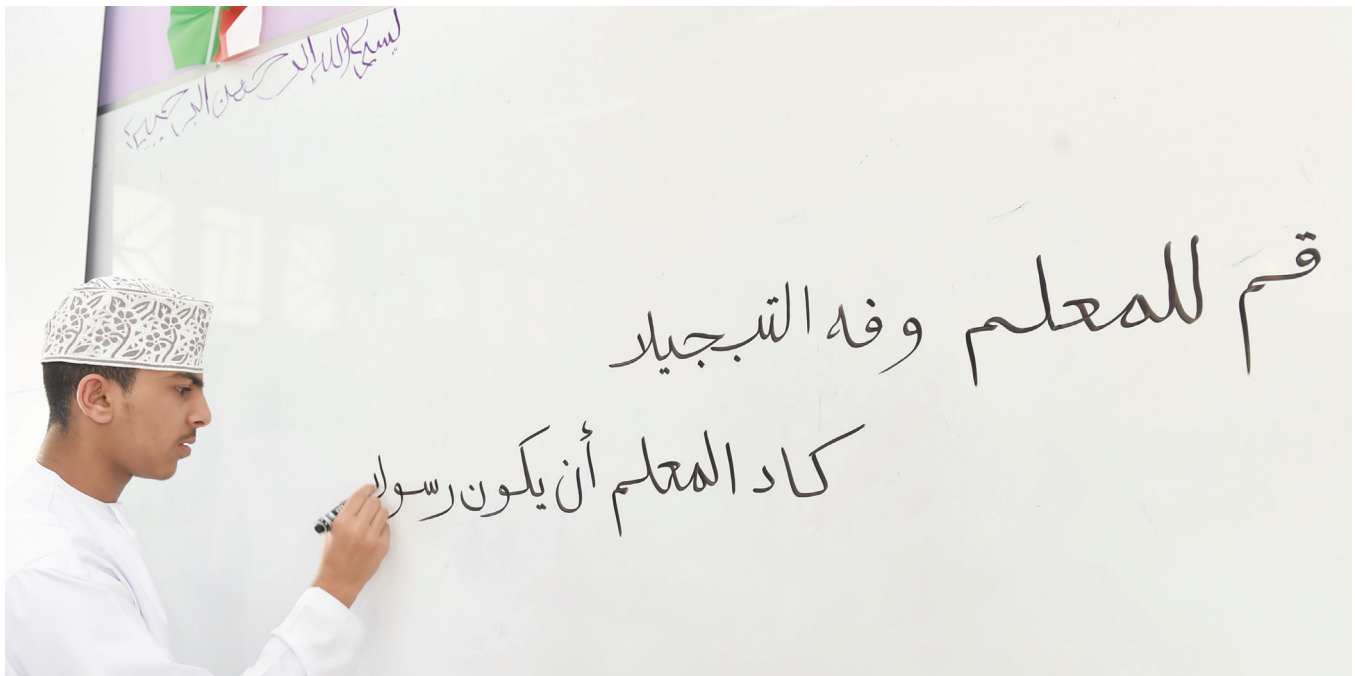 بسم الله الرحمن الرحيم
قم للمعلم وفه التبجيلا
كاد المعلم أن يكون رسولا